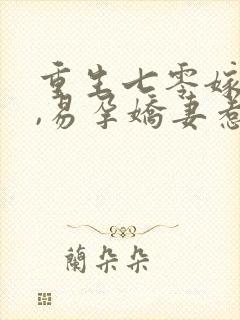 重生七零嫁
,易孕嬌妻惹
蘭朵朵